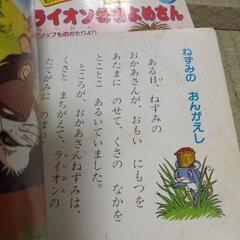 ライオン
イソップものがたりより
ねずみの おんがえし
ある日、ねずみの
おかあさんが、おもい にもつを
あたまに のせて、くさの なかを
とことこ あるいていました。
ところが、おかあさんねずみは、
くさと まちがえて、ライオンの
たてがみに のぼ